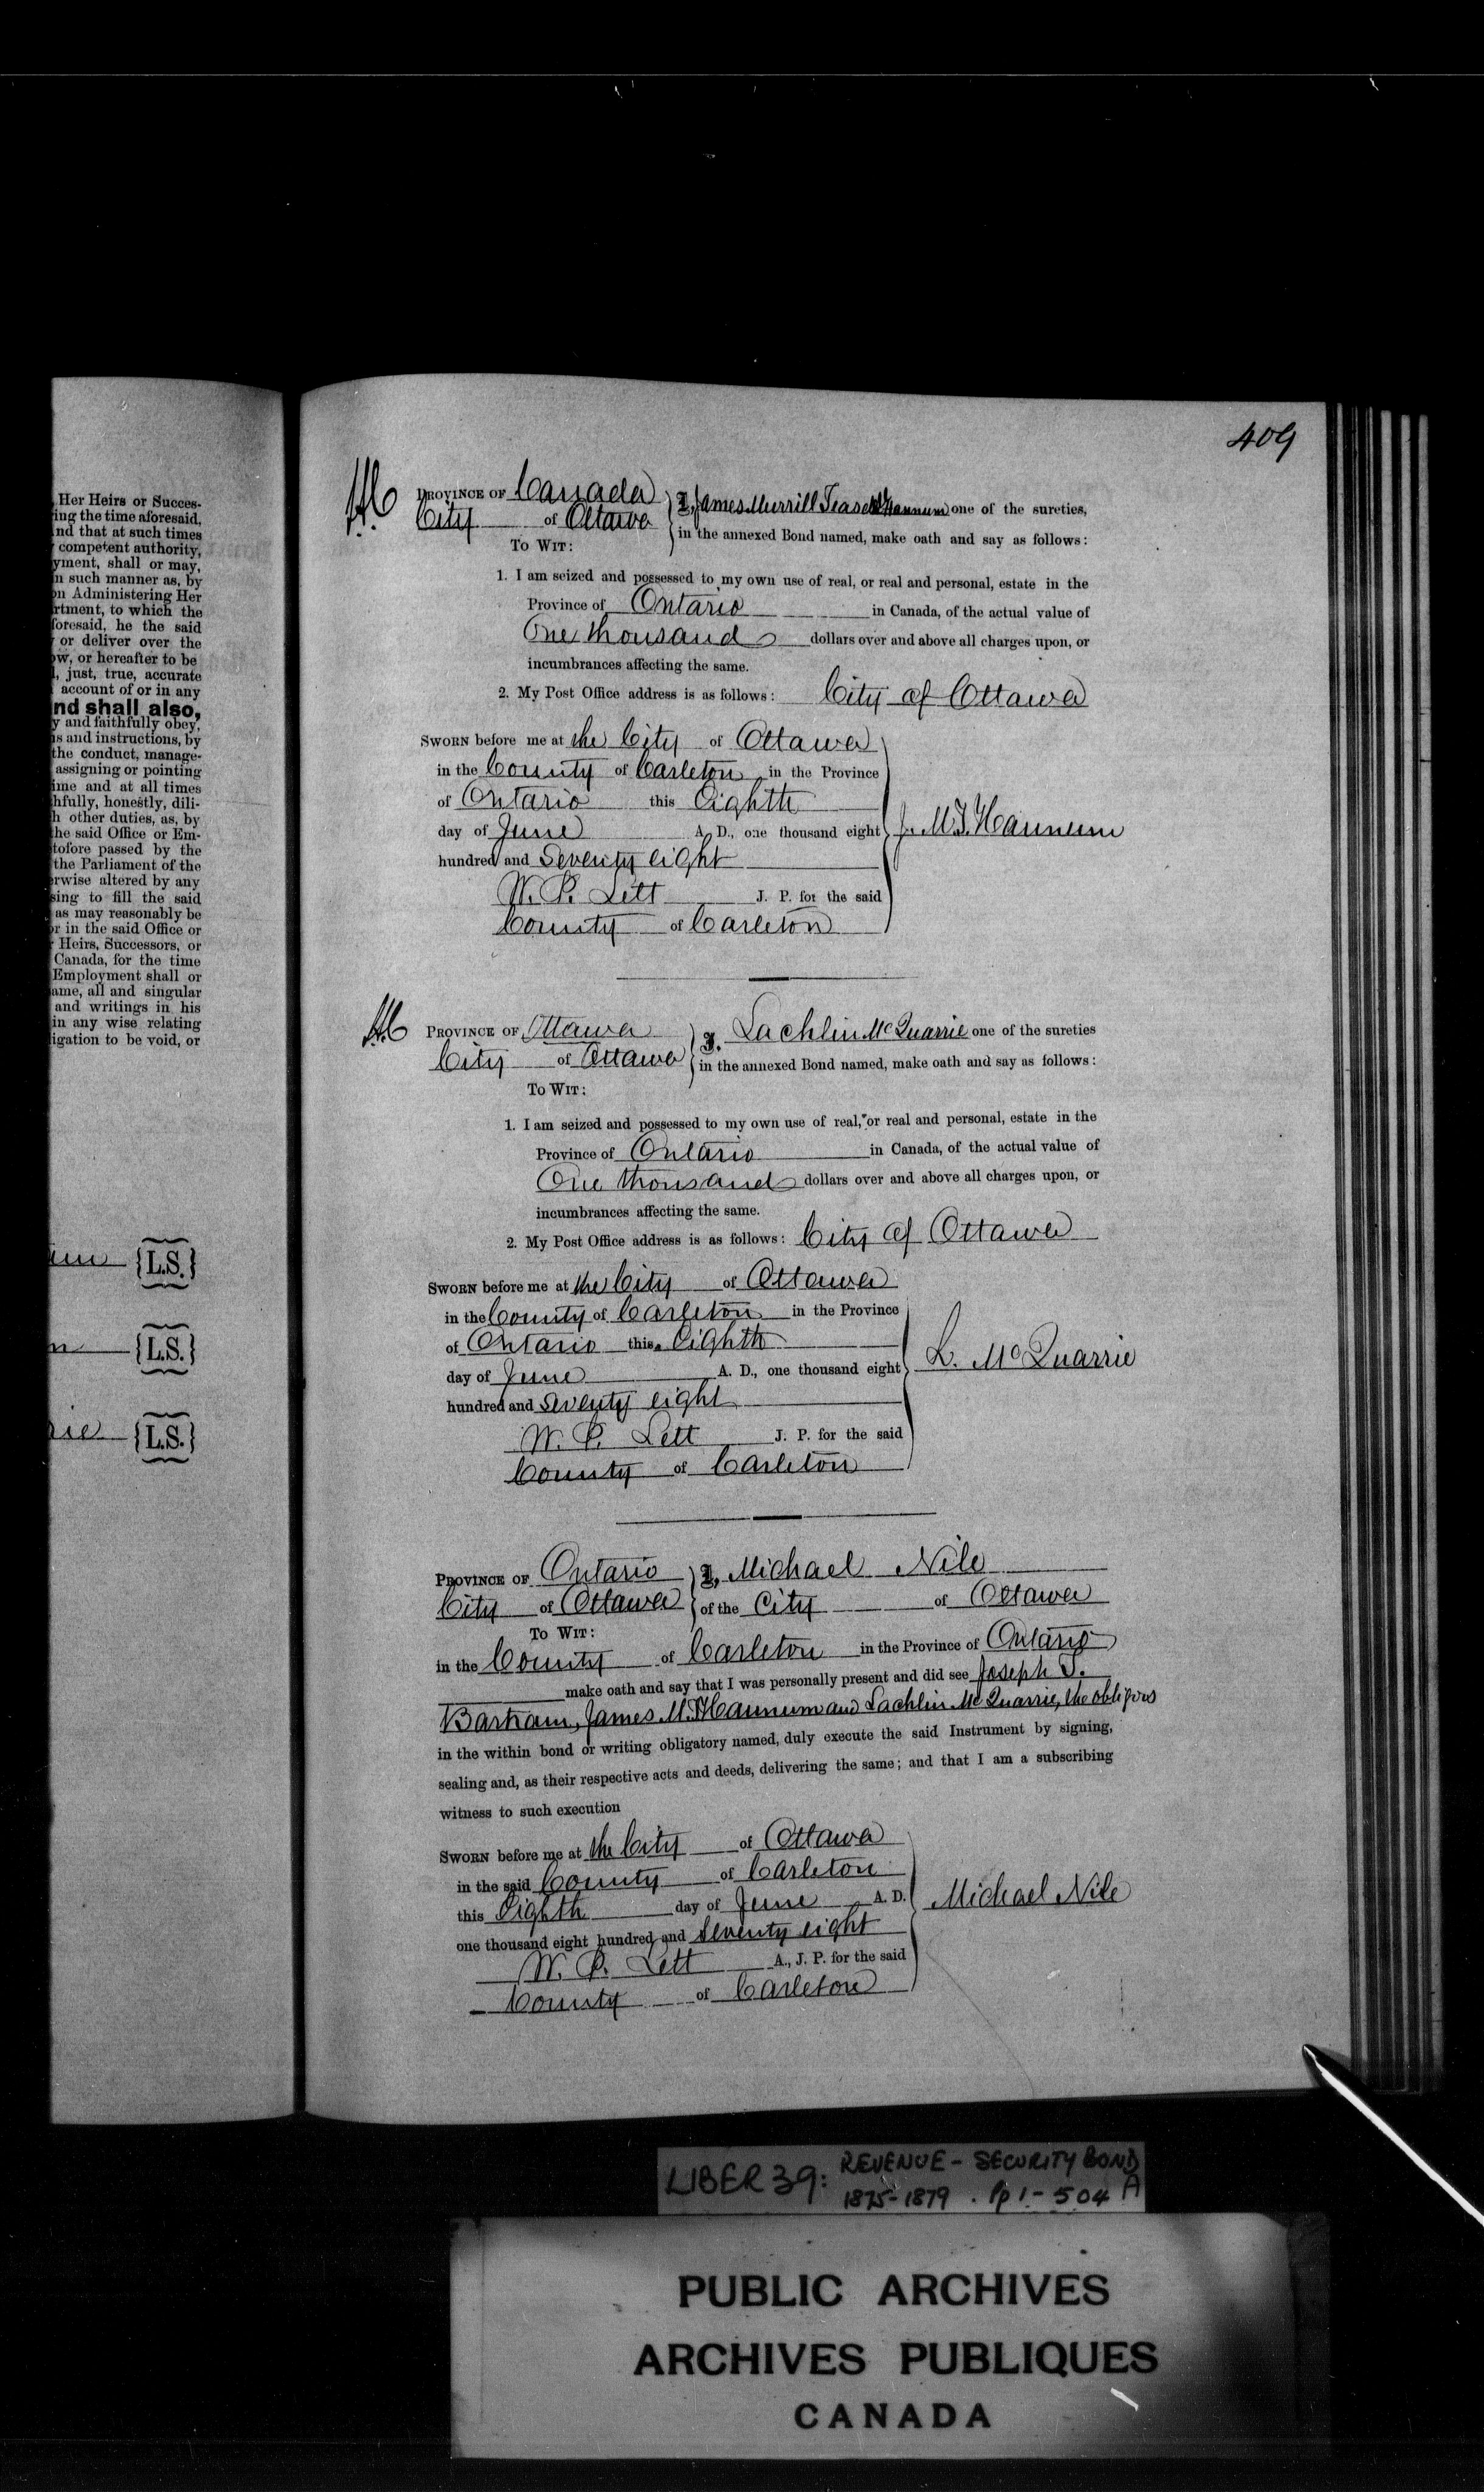 409
Her Heirs or Succes-
ing the time aforesaid,
nd that at such times
competent authority,
yment, shall or may,
n such manner as, by
on Administering Her
rtment, to which the
foresaid, he the said
or deliver over the
ow, or hereafter to be
, just, true, accurate
account of or in any
nd shall also,
y and faithfully obey,
s and instructions, by
the conduct, manage-
assigning or pointing
ime and at all times
hfully, honestly, dili-
h other duties, as, by
he said Office or Em-
tofore passed by the
the Parliament of the
erwise altered by any
sing to fill the said
as may reasonably be
or in the said Office or
Heirs, Successors, or
Canada, for the time
Employment shall or
ame, all and singular
and writings in his
in any wise relating
igation to be void, or
um {L.S.}
n {L.S.}
rie {L.S.}
PROVINCE OF Canada } I, James Merrill Hannum one of the sureties,
City of Ottawa } in the annexed Bond named, make oath and say as follows:
TO WIT:
1. I am seized and possessed to my own use of real, or real and personal, estate in the
Province of Ontario in Canada, of the actual value of
One thousand dollars over and above all charges upon, or
incumbrances affecting the same.
2. My Post Office address is as follows: City of Ottawa
SWORN before me at the City of Ottawa
in the County of Carleton in the Province
of Ontario this Eighth
day of June A. D., one thousand eight } J. M. T. Hannum
hundred and Seventy eight
W. P. Lett J. P. for the said
County of Carleton
PROVINCE OF Ottawa } I, Lachlin McQuarrie one of the sureties
City of Ottawa } in the annexed Bond named, make oath and say as follows:
TO WIT:
1. I am seized and possessed to my own use of real, or real and personal, estate in the
Province of Ontario in Canada, of the actual value of
One thousand dollars over and above all charges upon, or
incumbrances affecting the same.
2. My Post Office address is as follows: City of Ottawa
SWORN before me at the City of Ottawa
in the County of Carleton in the Province
of Ontario this Eighth
day of June A. D., one thousand eight } L. McQuarrie
hundred and Seventy eight
W. P. Lett J. P. for the said
County of Carleton
PROVINCE OF Ontario } I, Michael Nile
City of Ottawa } of the City of Ottawa
TO WIT:
in the County of Carleton in the Province of Ontario
make oath and say that I was personally present and did see Joseph T.
Bartram, James M. T. Hannum and Lachlin McQuarrie, the obligors
in the within bond or writing obligatory named, duly execute the said Instrument by signing,
sealing and, as their respective acts and deeds, delivering the same; and that I am a subscribing
witness to such execution
SWORN before me at the City of Ottawa
in the said County of Carleton
this Eighth day of June A. D. } Michael Nile
one thousand eight hundred and Seventy eight
W. P. Lett A., J. P. for the said
County of Carleton
LIBER 39: REVENUE - SECURITY BOND
1875-1879 . Pp 1 - 504 A
PUBLIC ARCHIVES
ARCHIVES PUBLIQUES
CANADA